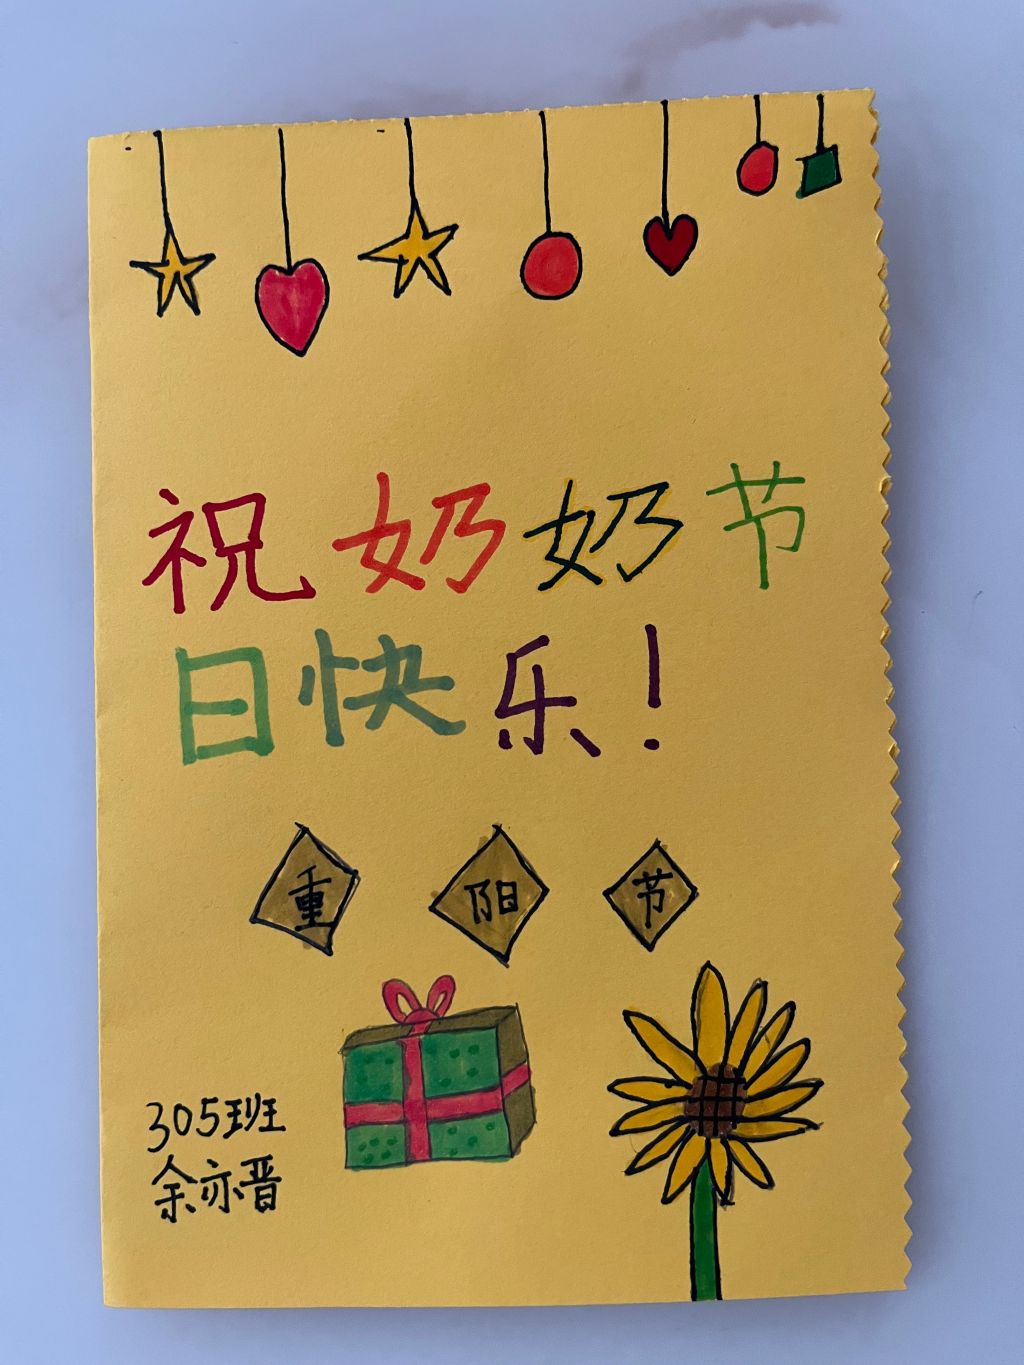 祝奶奶节
日快乐!
重阳节
305班
余亦晋